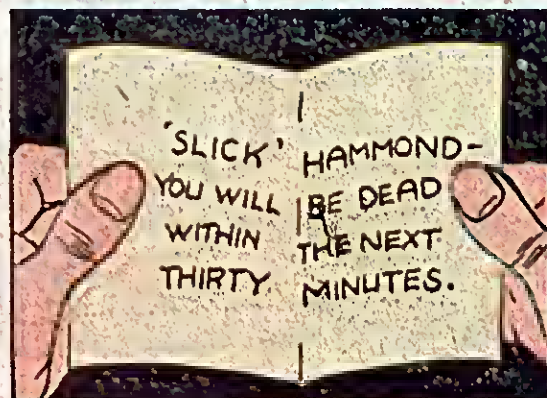 'SLICK' HAMMOND-
YOU WILL BE DEAD
WITHIN THE NEXT
THIRTY MINUTES.